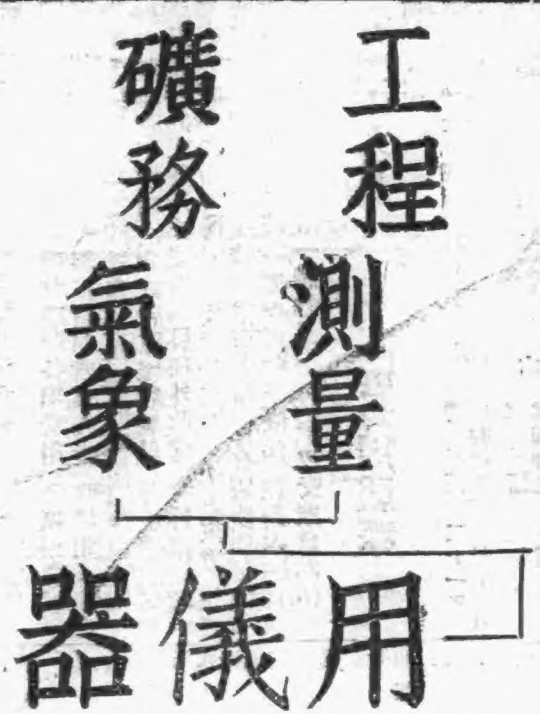 工程
測量
礦務
氣象
用儀器